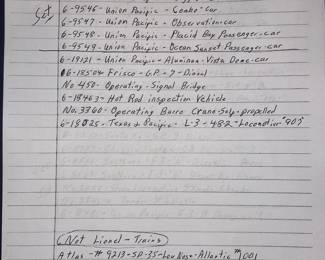 Set
6-9546-Union Pacific - Combo-car
6-9547-Union Pacific - Observation-car
6-9548-Union Pacific - Placid Bay Passenger-car
6-9549-Union Pacific - Ocean Sunset Passenger-car
6-19121-Union Pacific-Aluminum-Vista Dome-car
6-18504 Frisco-G.P.-7-Diesel
No 450-Operating-Signal Bridge
6-18463-Hot Rod inspection Vehicle
No. 3360-Operating Burro Crane-Self-propelled
6-18025-Texas & Pacific-L-3-4-8-2-Locomotive #907
(Not Lionel-Trains)
Atlas-# 9213-SD-35-Low Nose-Atlantic #1001